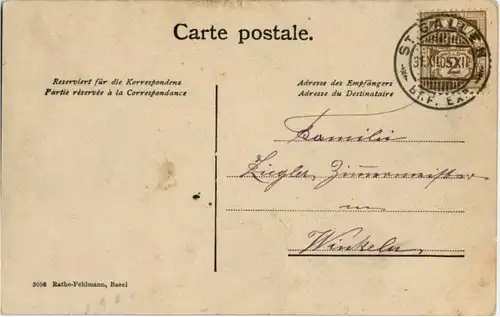 Carte postale.
ST. GALLEN
31.XII.05.XII
BRF. EXP.
2
Reserviert für die Korrespondenz
Partie réservée à la Correspondance
Adresse des Empfängers
Adresse du Destinataire
Familie
Ziegler, Zimmermeister
in
Winkeln
3056 Rathe-Fehlmann, Basel